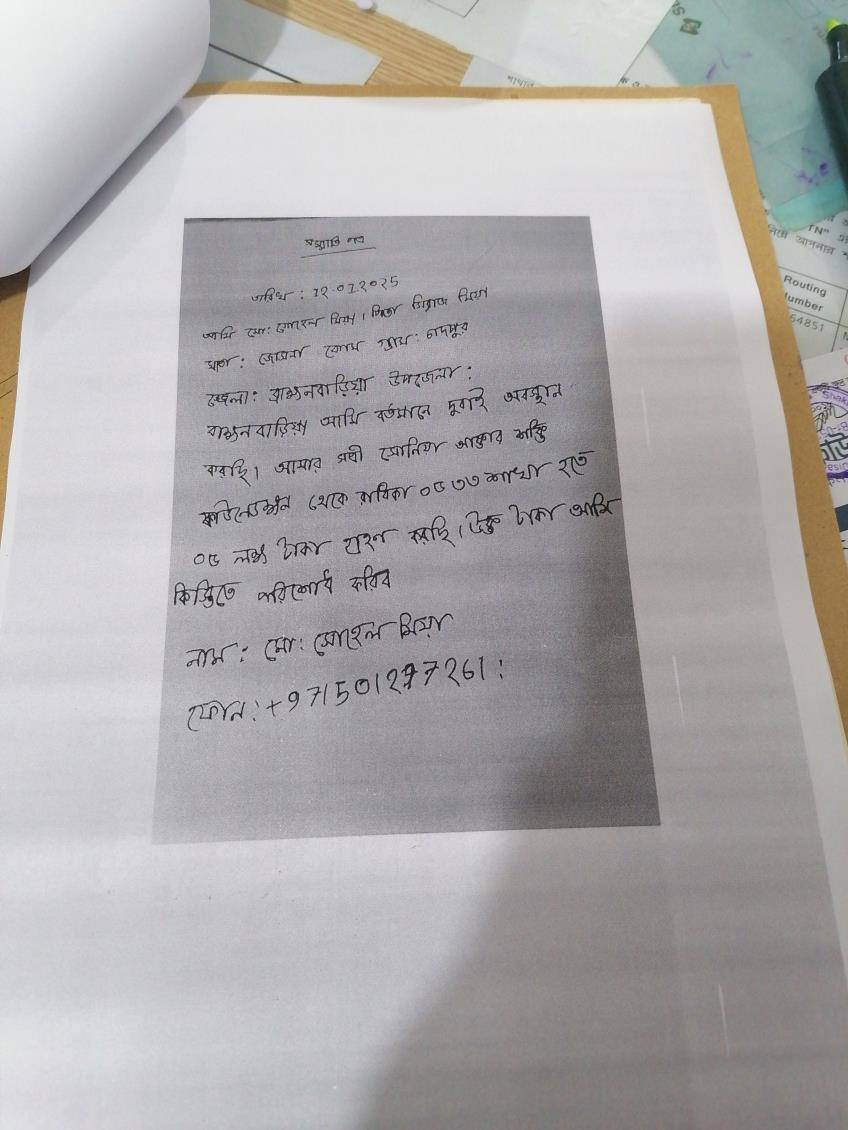 সম্মতি পত্র
তারিখ : 12.01.2025
আমি মো: সোহেল মিয়া। পিতা সিরাজ মিয়া
মাতা : জোসনা বেগম গ্রাম: চাদপুর
জেলা: ব্রাহ্মনবাড়িয়া উপজেলা :
বাহ্মনবাড়িয়া আমি বর্তমানে দুবাই অবস্থান
করছি। আমার স্ত্রী সোনিয়া আক্তার শক্তি
ফাউন্ডেশন থেকে রাধিকা ০৫৩৩ শাখা হতে
০৫ লক্ষ টাকা গ্রহন করছি। উক্ত টাকা আমি
কিস্তিতে পরিশোধ করিব
নাম : মো: সোহেল মিয়া
ফোন: +971501297261:
Routing
umber
64851
TN"